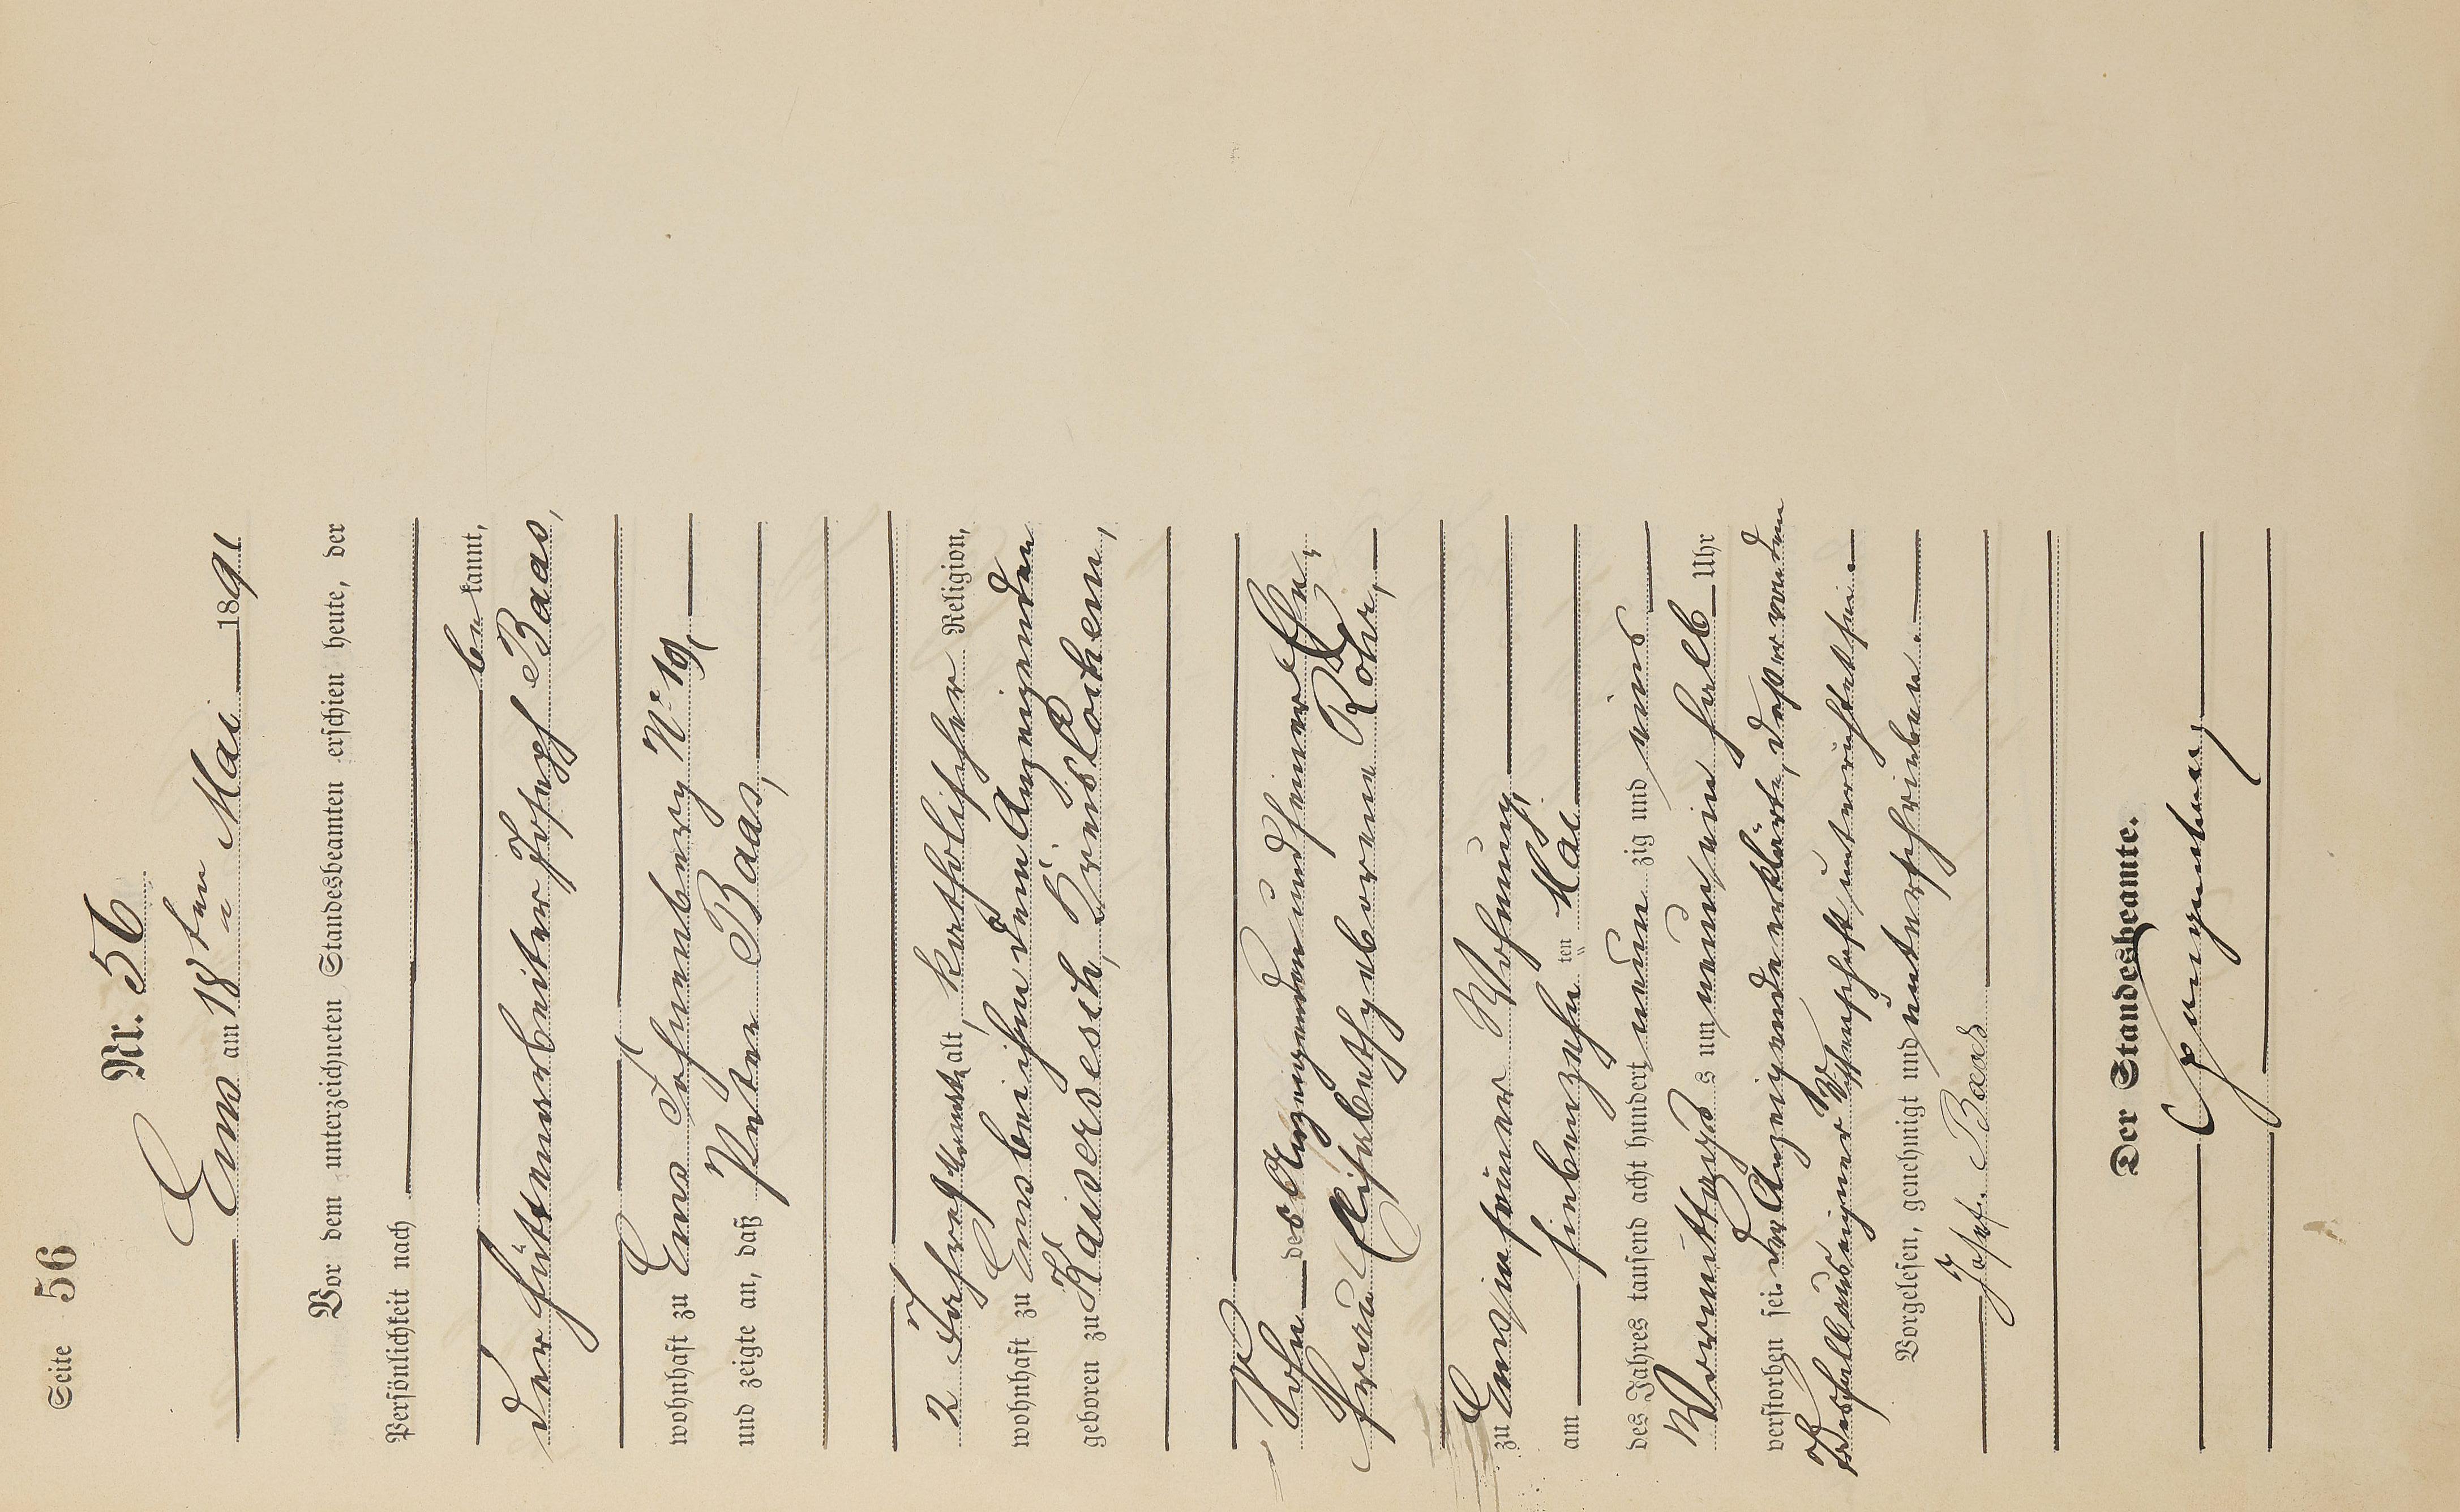 Seite 56
Nr. 56
Ems am 18ten Mai 1891
Vor dem unterzeichneten Standesbeamten erschien heute, der
Persönlichkeit nach
bekannt,
der Hüttenarbeiter Joseph Baas,
wohnhaft zu Ems
und zeigte an, daß Peter Baas,
2 Jahre alt, katholischer Religion,
wohnhaft zu Ems bei ihm dem Anzeigenden
geboren zu Kaisersesch, Kreis Cochem,
Sohn des Anzeigenden und seiner Ehe-
frau Elisabeth geborene Rohr,
zu Ems in seiner Wohnung,
am siebenzehnten Mai
des Jahres tausend acht hundert neunzig und eins
Vormittags um neun ein halb Uhr
verstorben sei. der Anzeigende erklärte, daß er von dem
Sterbefall aus eigner Wissenschaft unterrichtet sei.
Vorgelesen, genehmigt und unterschrieben.
Josef Baas
Der Standesbeamte.